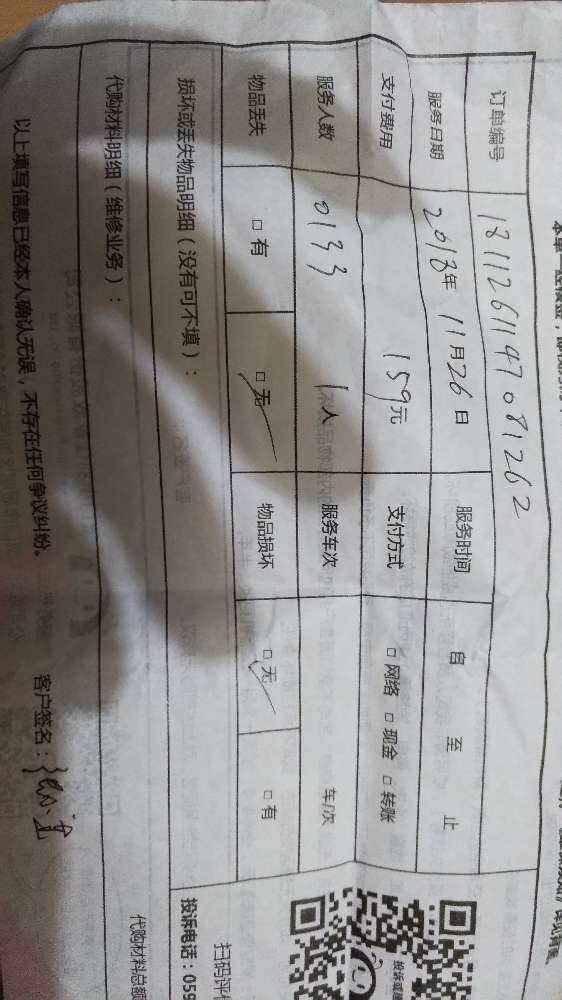 订单编号 1811261147081262
服务日期 2018年 11月26日 服务时间 自 至 止
支付费用 159元 支付方式 □网络 □现金 □转账
服务人数 0133 1人 服务车次 车/次
物品丢失 □有 □无 物品损坏 □无 □有
损坏或丢失物品明细（没有可不填）：
代购材料明细（维修业务）：
代购材料总额
以上填写信息已经本人确认无误，不存在任何争议纠纷。 客户签名：
投诉电话：059